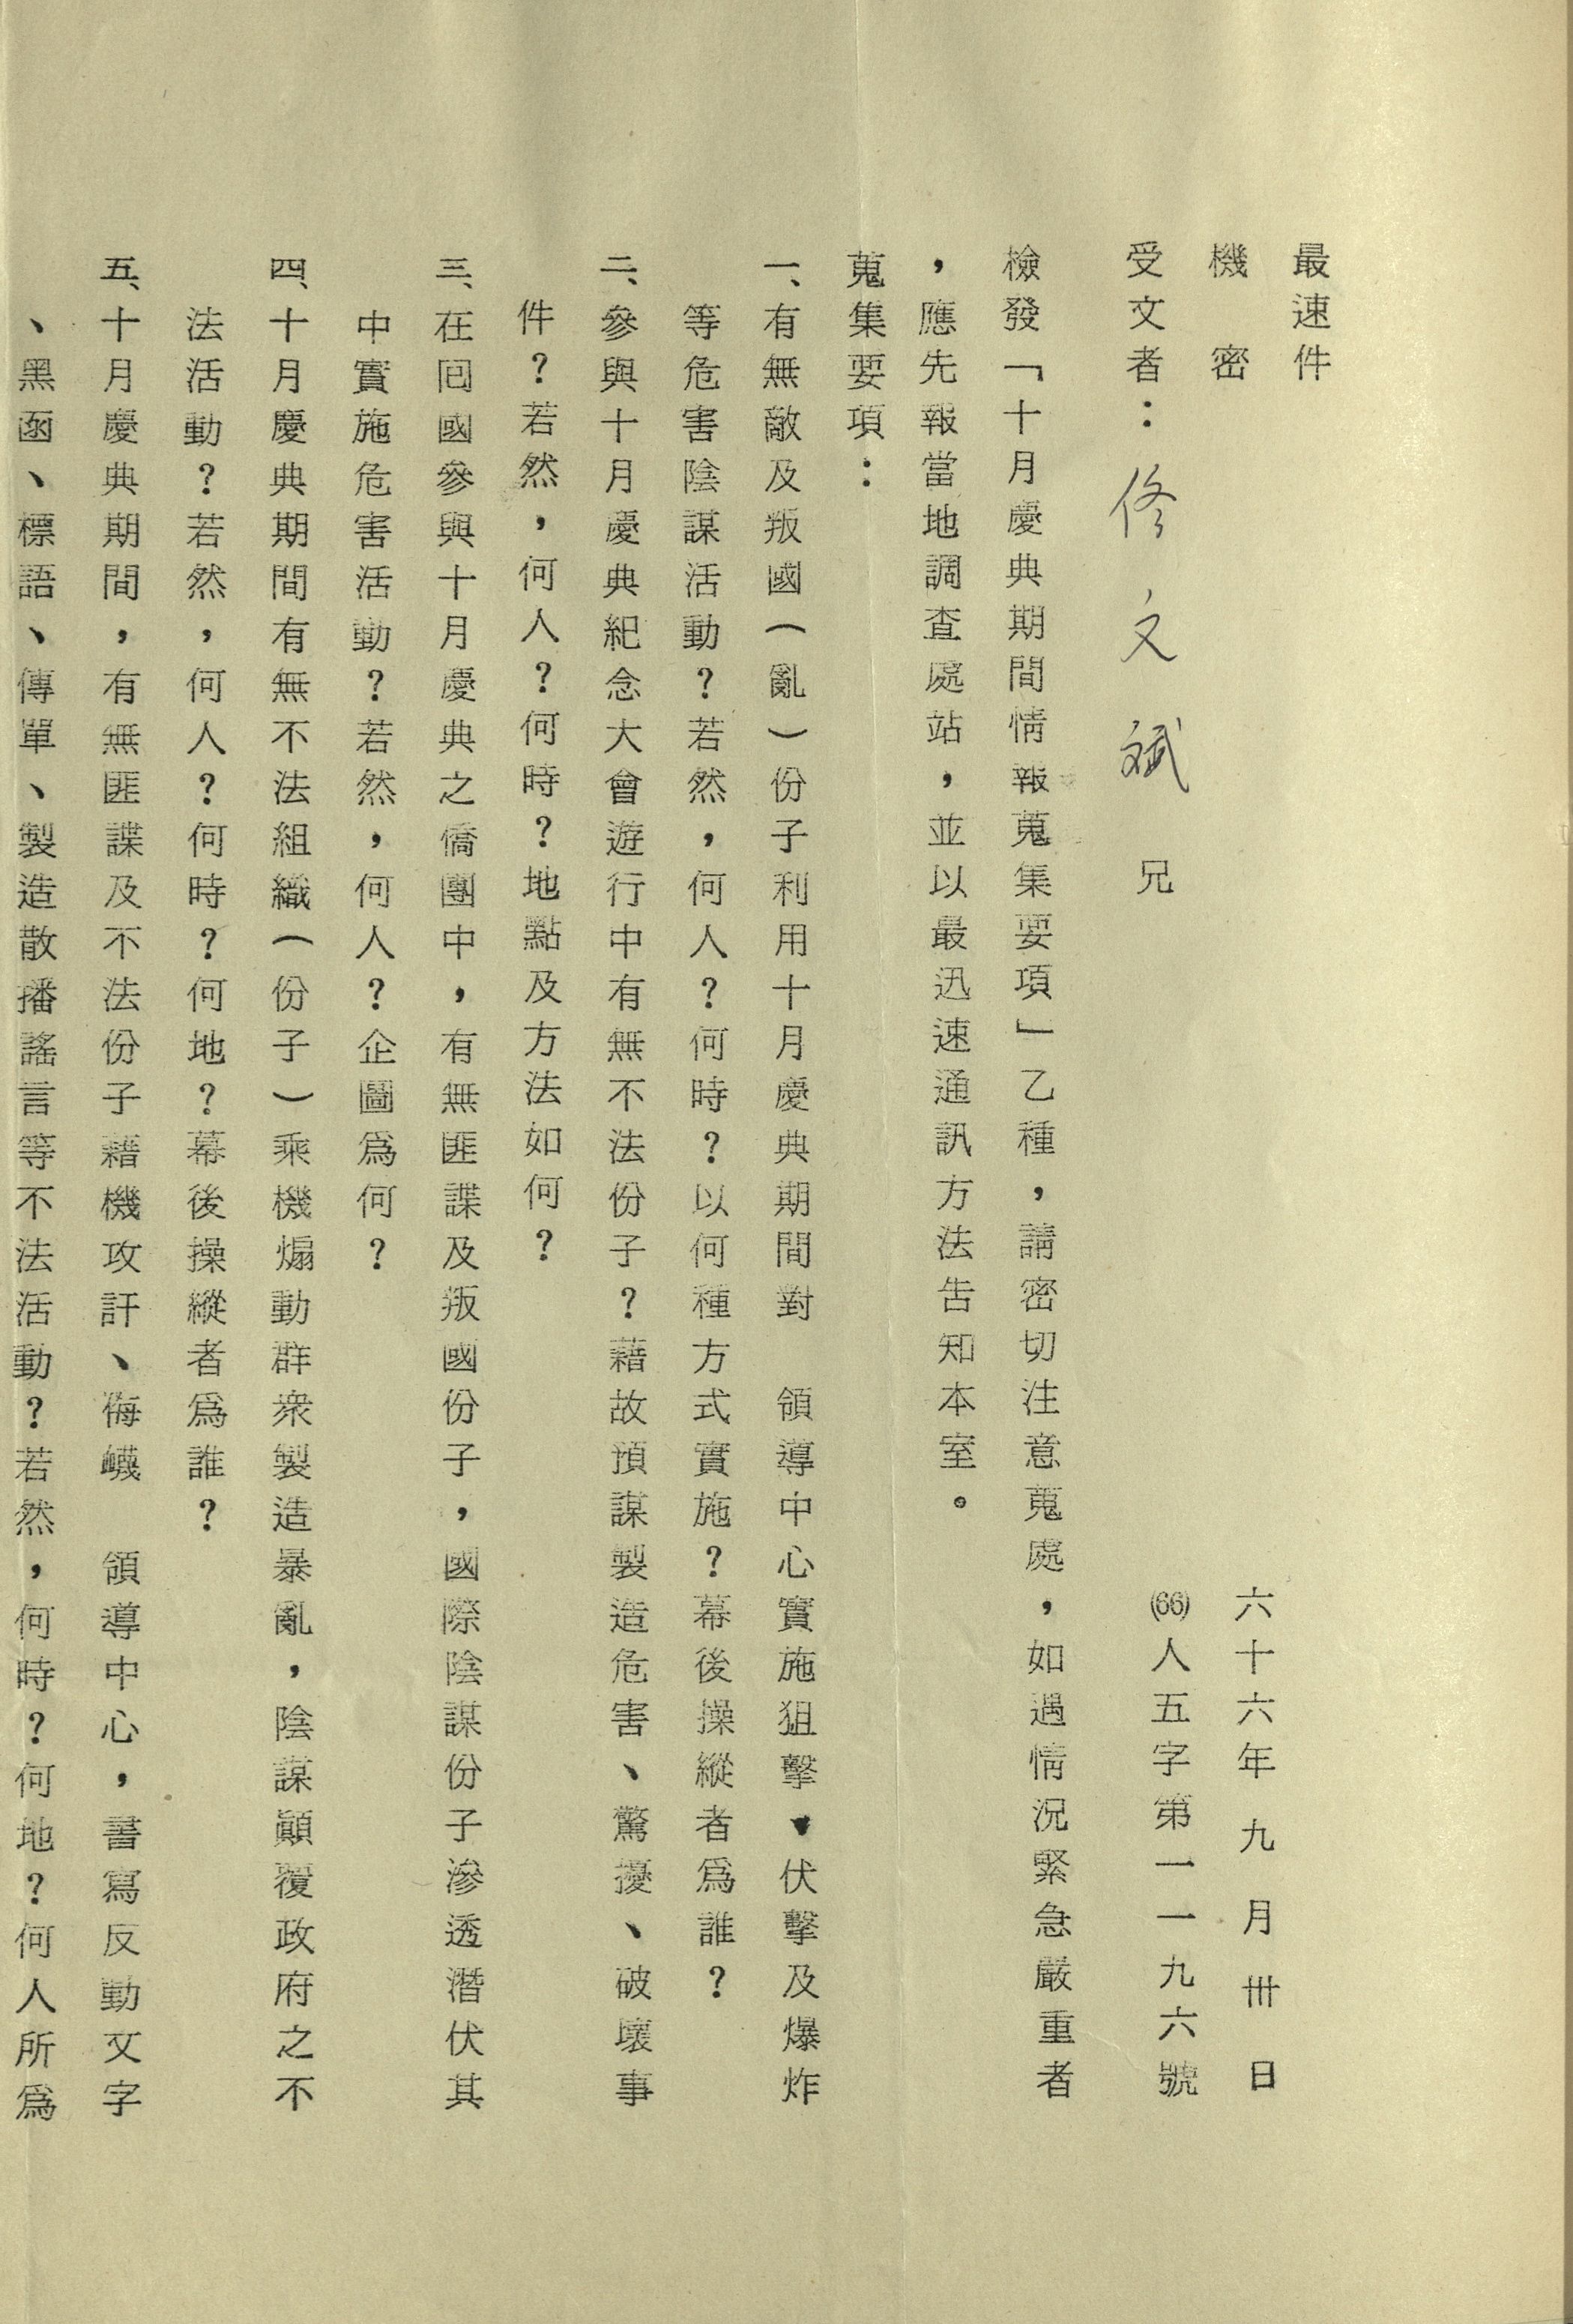 最速件
機密
六十六年九月卅日
受文者：佟文斌兄
(66)人五字第一一九六號
檢發「十月慶典期間情報蒐集要項」乙種，請密切注意蒐處，如遇情況緊急嚴重者
，應先報當地調查處站，並以最迅速通訊方法告知本室。
蒐集要項：
一、有無敵及叛國（亂）份子利用十月慶典期間對　領導中心實施狙擊、伏擊及爆炸
等危害陰謀活動？若然，何人？何時？以何種方式實施？幕後操縱者為誰？
二、參與十月慶典紀念大會遊行中有無不法份子？藉故預謀製造危害、驚擾、破壞事
件？若然，何人？何時？地點及方法如何？
三、在回國參與十月慶典之僑團中，有無匪諜及叛國份子，國際陰謀份子滲透潛伏其
中實施危害活動？若然，何人？企圖為何？
四、十月慶典期間有無不法組織（份子）乘機煽動群衆製造暴亂，陰謀顚覆政府之不
法活動？若然，何人？何時？何地？幕後操縱者為誰？
五、十月慶典期間，有無匪諜及不法份子藉機攻訐、侮衊　領導中心，書寫反動文字
、黑函、標語、傳單、製造散播謠言等不法活動？若然，何時？何地？何人所為